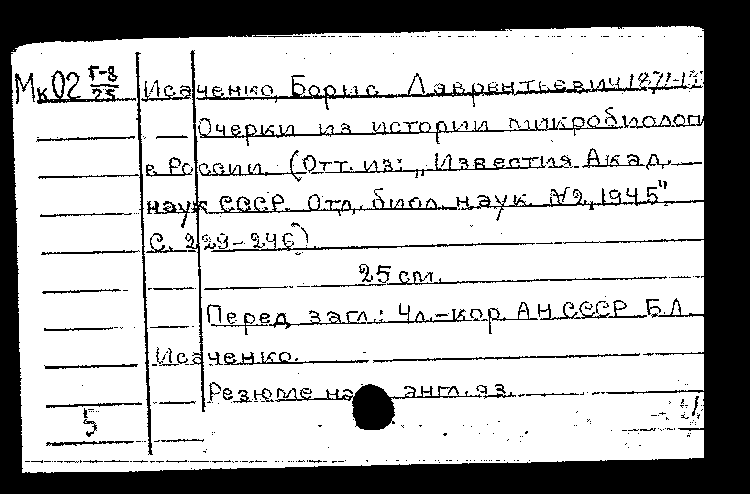 Мк02 Г-8/25 Исаченко, Борис Лаврентьевич 1871-19
Очерки из истории микробиологи
в России. (Отт. из: „Известия Акад.
наук СССР. Отд. биол. наук. №2, 1945".
С. 229-246).
25 см.
Перед загл.: Чл.-кор. АН СССР Б.Л.
Исаченко.
Резюме на англ. яз.
5